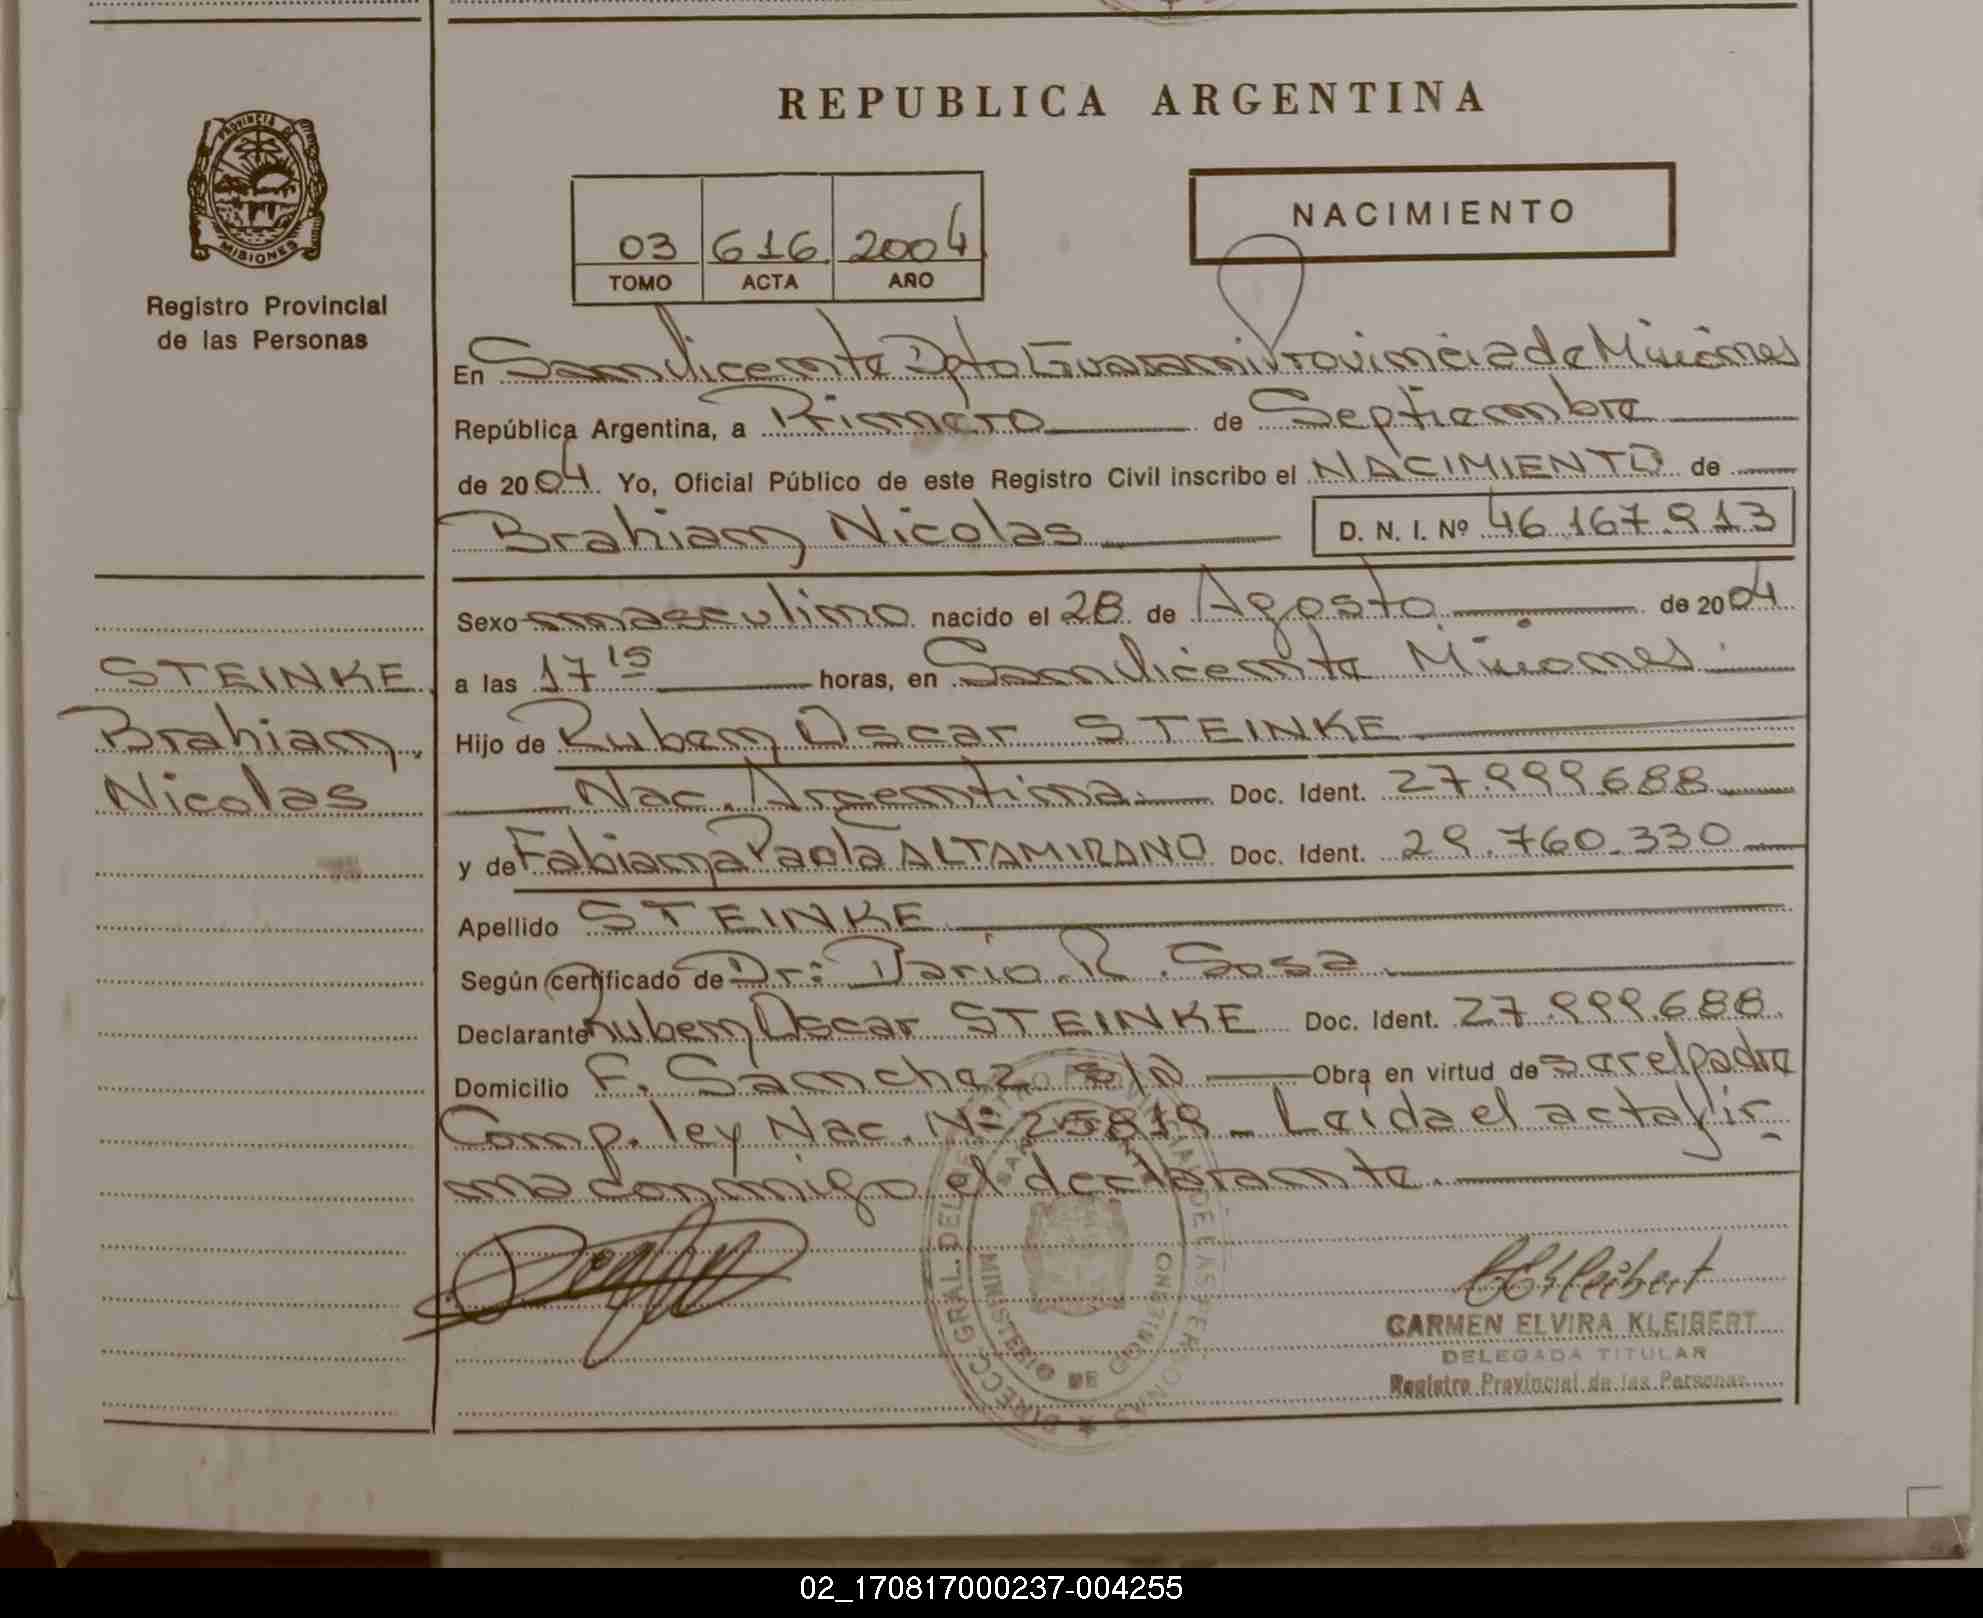 REPUBLICA ARGENTINA
PROVINCIA DE MISIONES
Registro Provincial
de las Personas
NACIMIENTO
03 616 2004
TOMO ACTA AÑO
En San Vicente Dpto Guarani Provincia de Misiones
República Argentina, a Primero de Septiembre
de 2004 Yo, Oficial Público de este Registro Civil inscribo el NACIMIENTO de
Brahian Nicolas D. N. I. Nº 46.167.913
Sexo masculino nacido el 28 de Agosto de 2004
a las 17 15 horas, en San Vicente Misiones
Hijo de Ruben Oscar STEINKE
Nac. Argentina. Doc. Ident. 27.999.688
y de Fabiana Paola ALTAMIRANO Doc. Ident. 29.760.330
Apellido STEINKE
Según certificado de Dr: Dario R. Sosa
Declarante Ruben Oscar STEINKE Doc. Ident. 27.999.688
Domicilio F. Sanchez S/N Obra en virtud de ser el padre
Comp. ley Nac. Nº 25819 - Leida el acta fir-
ma conmigo el declarante.
STEINKE
Brahian
Nicolas
DIRECC. GRAL. DEL REGISTRO PROVINCIAL DE LAS PERSONAS
MINISTERIO DE GOBIERNO
CARMEN ELVIRA KLEIBERT
DELEGADA TITULAR
Registro Provincial de las Personas
02_170817000237-004255